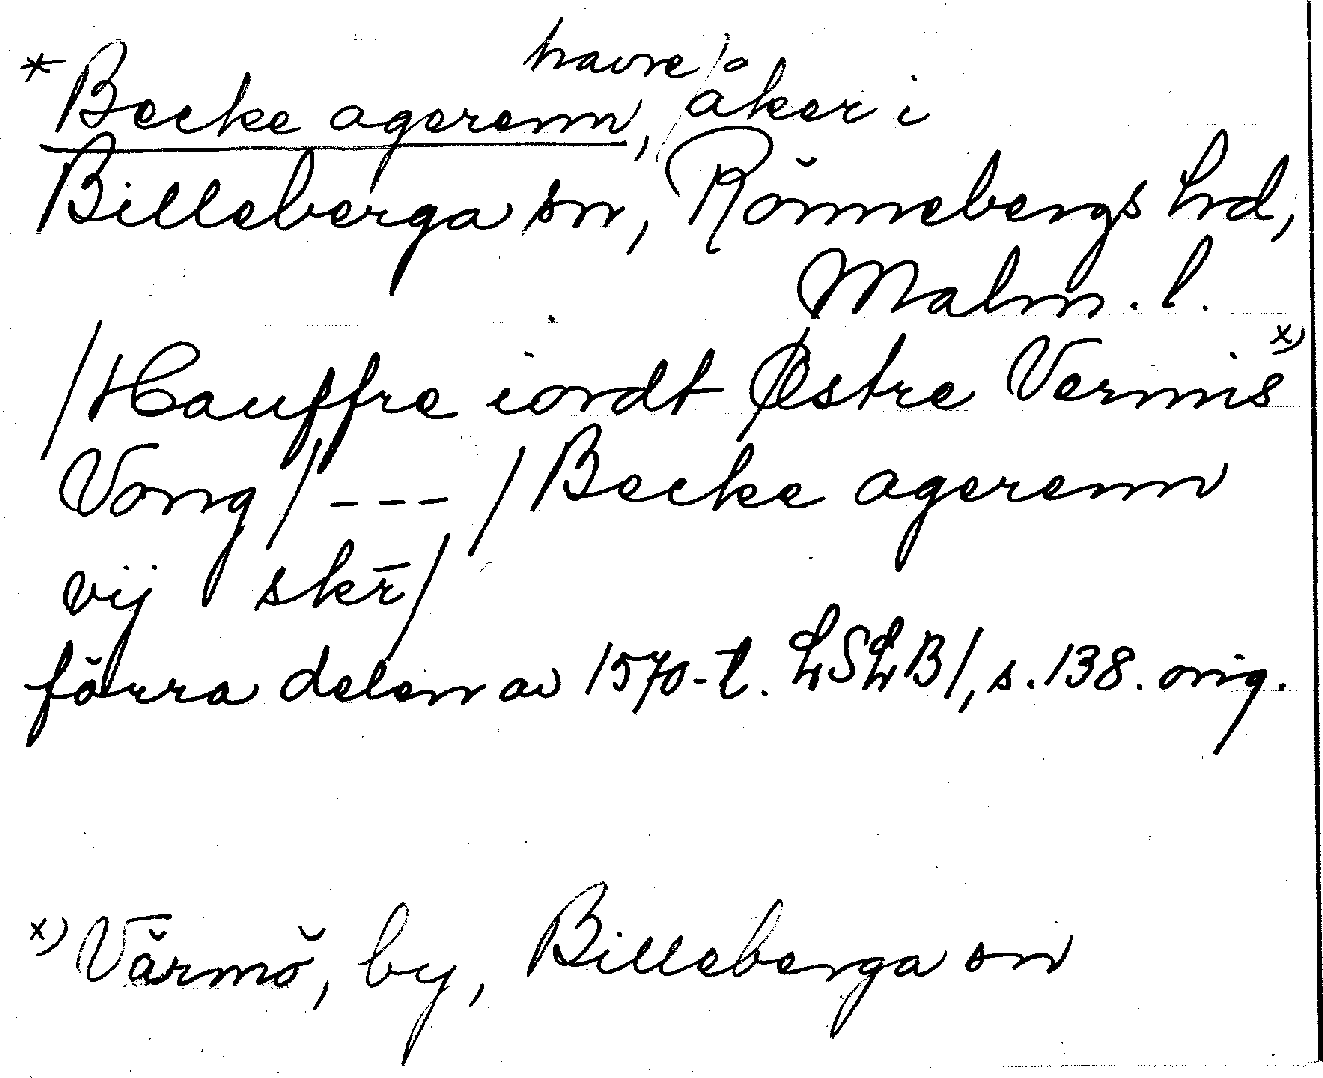 havre/
* Becke agerenn, åker i
Billeberga sn, Rönnebergs hd,
Malm. l.
/Hauffre iordt Østre Vermis x)
Vong/ --- /Becke agerenn
vij skr̄/
förra delen av 1570-t. LSLB1, s. 138. orig.
x) Värmö, by, Billeberga sn